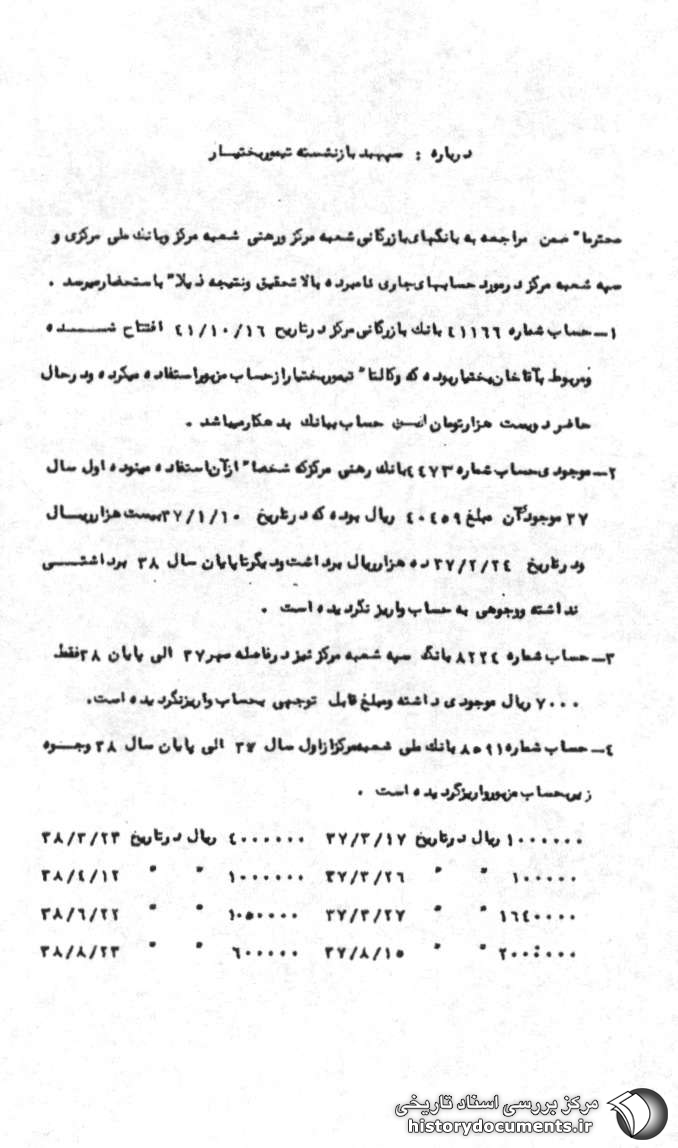 درباره : سپهبد بازنشسته تیمور بختیار
محترما" ضمن مراجعه به بانگهای بازرگانی شعبه مرکز ورهنی شعبه مرکز وبانک ملی مرکزی و
سپه شعبه مرکز درمورد حسابهای جاری نامبرده بالا تحقیق ونتیجه ذیلا" باستحضار میرسد .
۱ــ حساب شماره ۴۱۱۶۶ بانک بازرگانی مرکز درتاریخ ۴۱/۱۰/۱۶ افتتاح شــــده
ومربوط بآقاخان بختیار بوده که وکالتا" تیمور بختیار از حساب مزبور استفاده میکرده ودر حال
حاضر دویست هزارتومان این حساب ببانک بدهکار میباشد .
۲ــ موجودی حساب شماره ۴۴۷۳ بانک رهنی مرکز که شخصا" از آن استفاده مینوده اول سال
۳۷ موجودی آن مبلغ ۴۰۴۵۹ ریال بوده که درتاریخ ۳۷/۱/۱۰ بیست هزارریــال
ودرتاریخ ۳۷/۲/۲۴ ده هزارریال برداشت ودیگر تاپایان سال ۳۸ برداشتــی
نداشته ووجوهی به حساب واریز نگردیده است .
۳ــ حساب شماره ۸۲۲۴ بانگ سپه شعبه مرکز نیز درفاصله مهر ۳۷ الی پایان ۳۸ فقط
۷۰۰۰ ریال موجودی داشته ومبلغ قابل توجهی بحساب واریزنگردیده است.
۴ــ حساب شماره ۸۵۹۱ بانک ملی شعبه مرکز ازاول سال ۳۷ الی پایان سال ۳۸ وجــوه
زیر بحساب مزبور واریزگردیده است .
۱۰۰۰۰۰۰ ریال درتاریخ ۳۷/۳/۱۷ ۴۰۰۰۰۰۰ ریال درتاریخ ۳۸/۳/۲۳
۱۰۰۰۰۰ " " ۳۷/۳/۲۶ ۱۰۰۰۰۰۰ " " ۳۸/۴/۱۲
۱۶۴۰۰۰۰ " " ۳۷/۳/۲۷ ۱۰۵۰۰۰۰ " " ۳۸/۶/۲۲
۲۰۰۰۰۰۰ " " ۳۷/۸/۱۵ ۶۰۰۰۰۰ " " ۳۸/۸/۲۳
مرکز بررسی اسناد تاریخی
historydocuments.ir